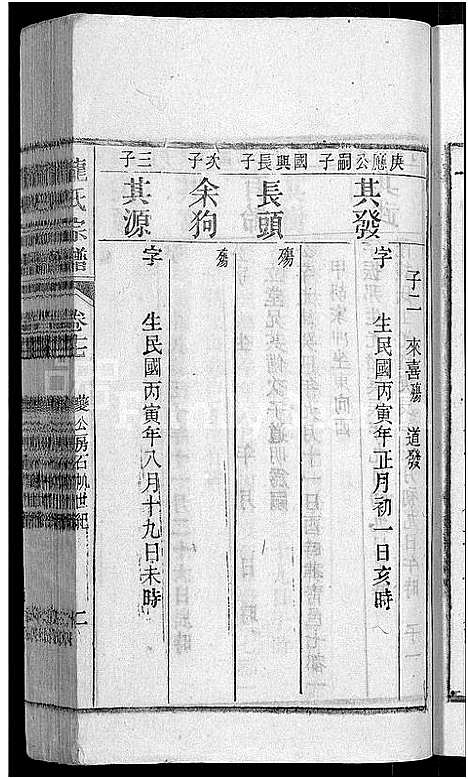 子二 來喜殤 道發
庚應公嗣子
其發
字 生民國丙寅年正月初一日亥時
國興長子
長頭
殤
次子
余狗
殤
三子
其源
字 生民國丙寅年八月十九日未時
龍氏宗譜
卷七